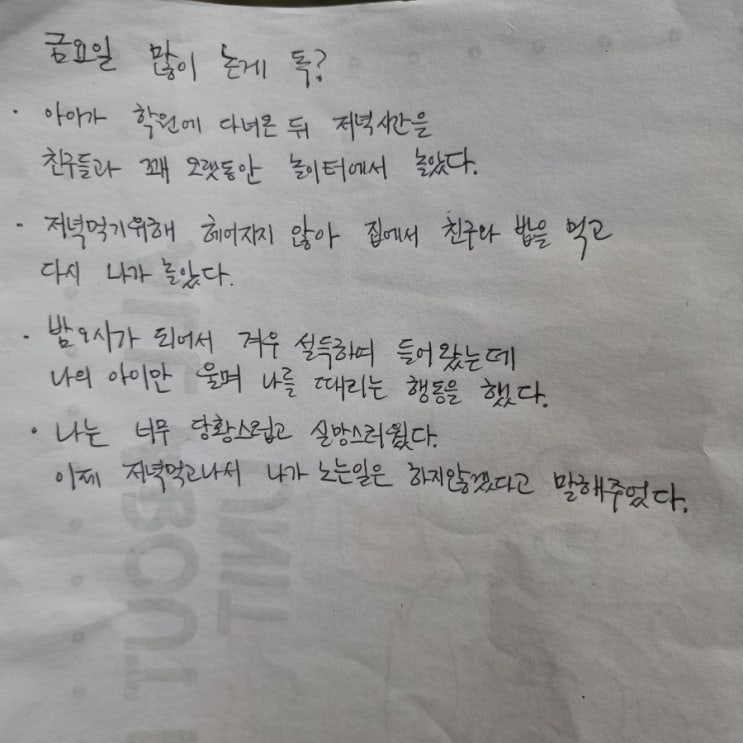 금요일 많이 논게 독?
· 아이가 학원에 다녀온 뒤 저녁시간을
친구들과 꽤 오랫동안 놀이터에서 놀았다.
· 저녁먹기위해 헤어지지 않아 집에서 친구와 밥을 먹고
다시 나가 놀았다.
· 밤 8시가 되어서 겨우 설득하여 들어왔는데
나의 아이만 울며 나를 때리는 행동을 했다.
· 나는 너무 당황스럽고 실망스러웠다.
이제 저녁먹고나서 나가 노는일은 하지않겠다고 말해주었다.
UNIT
ABOUT